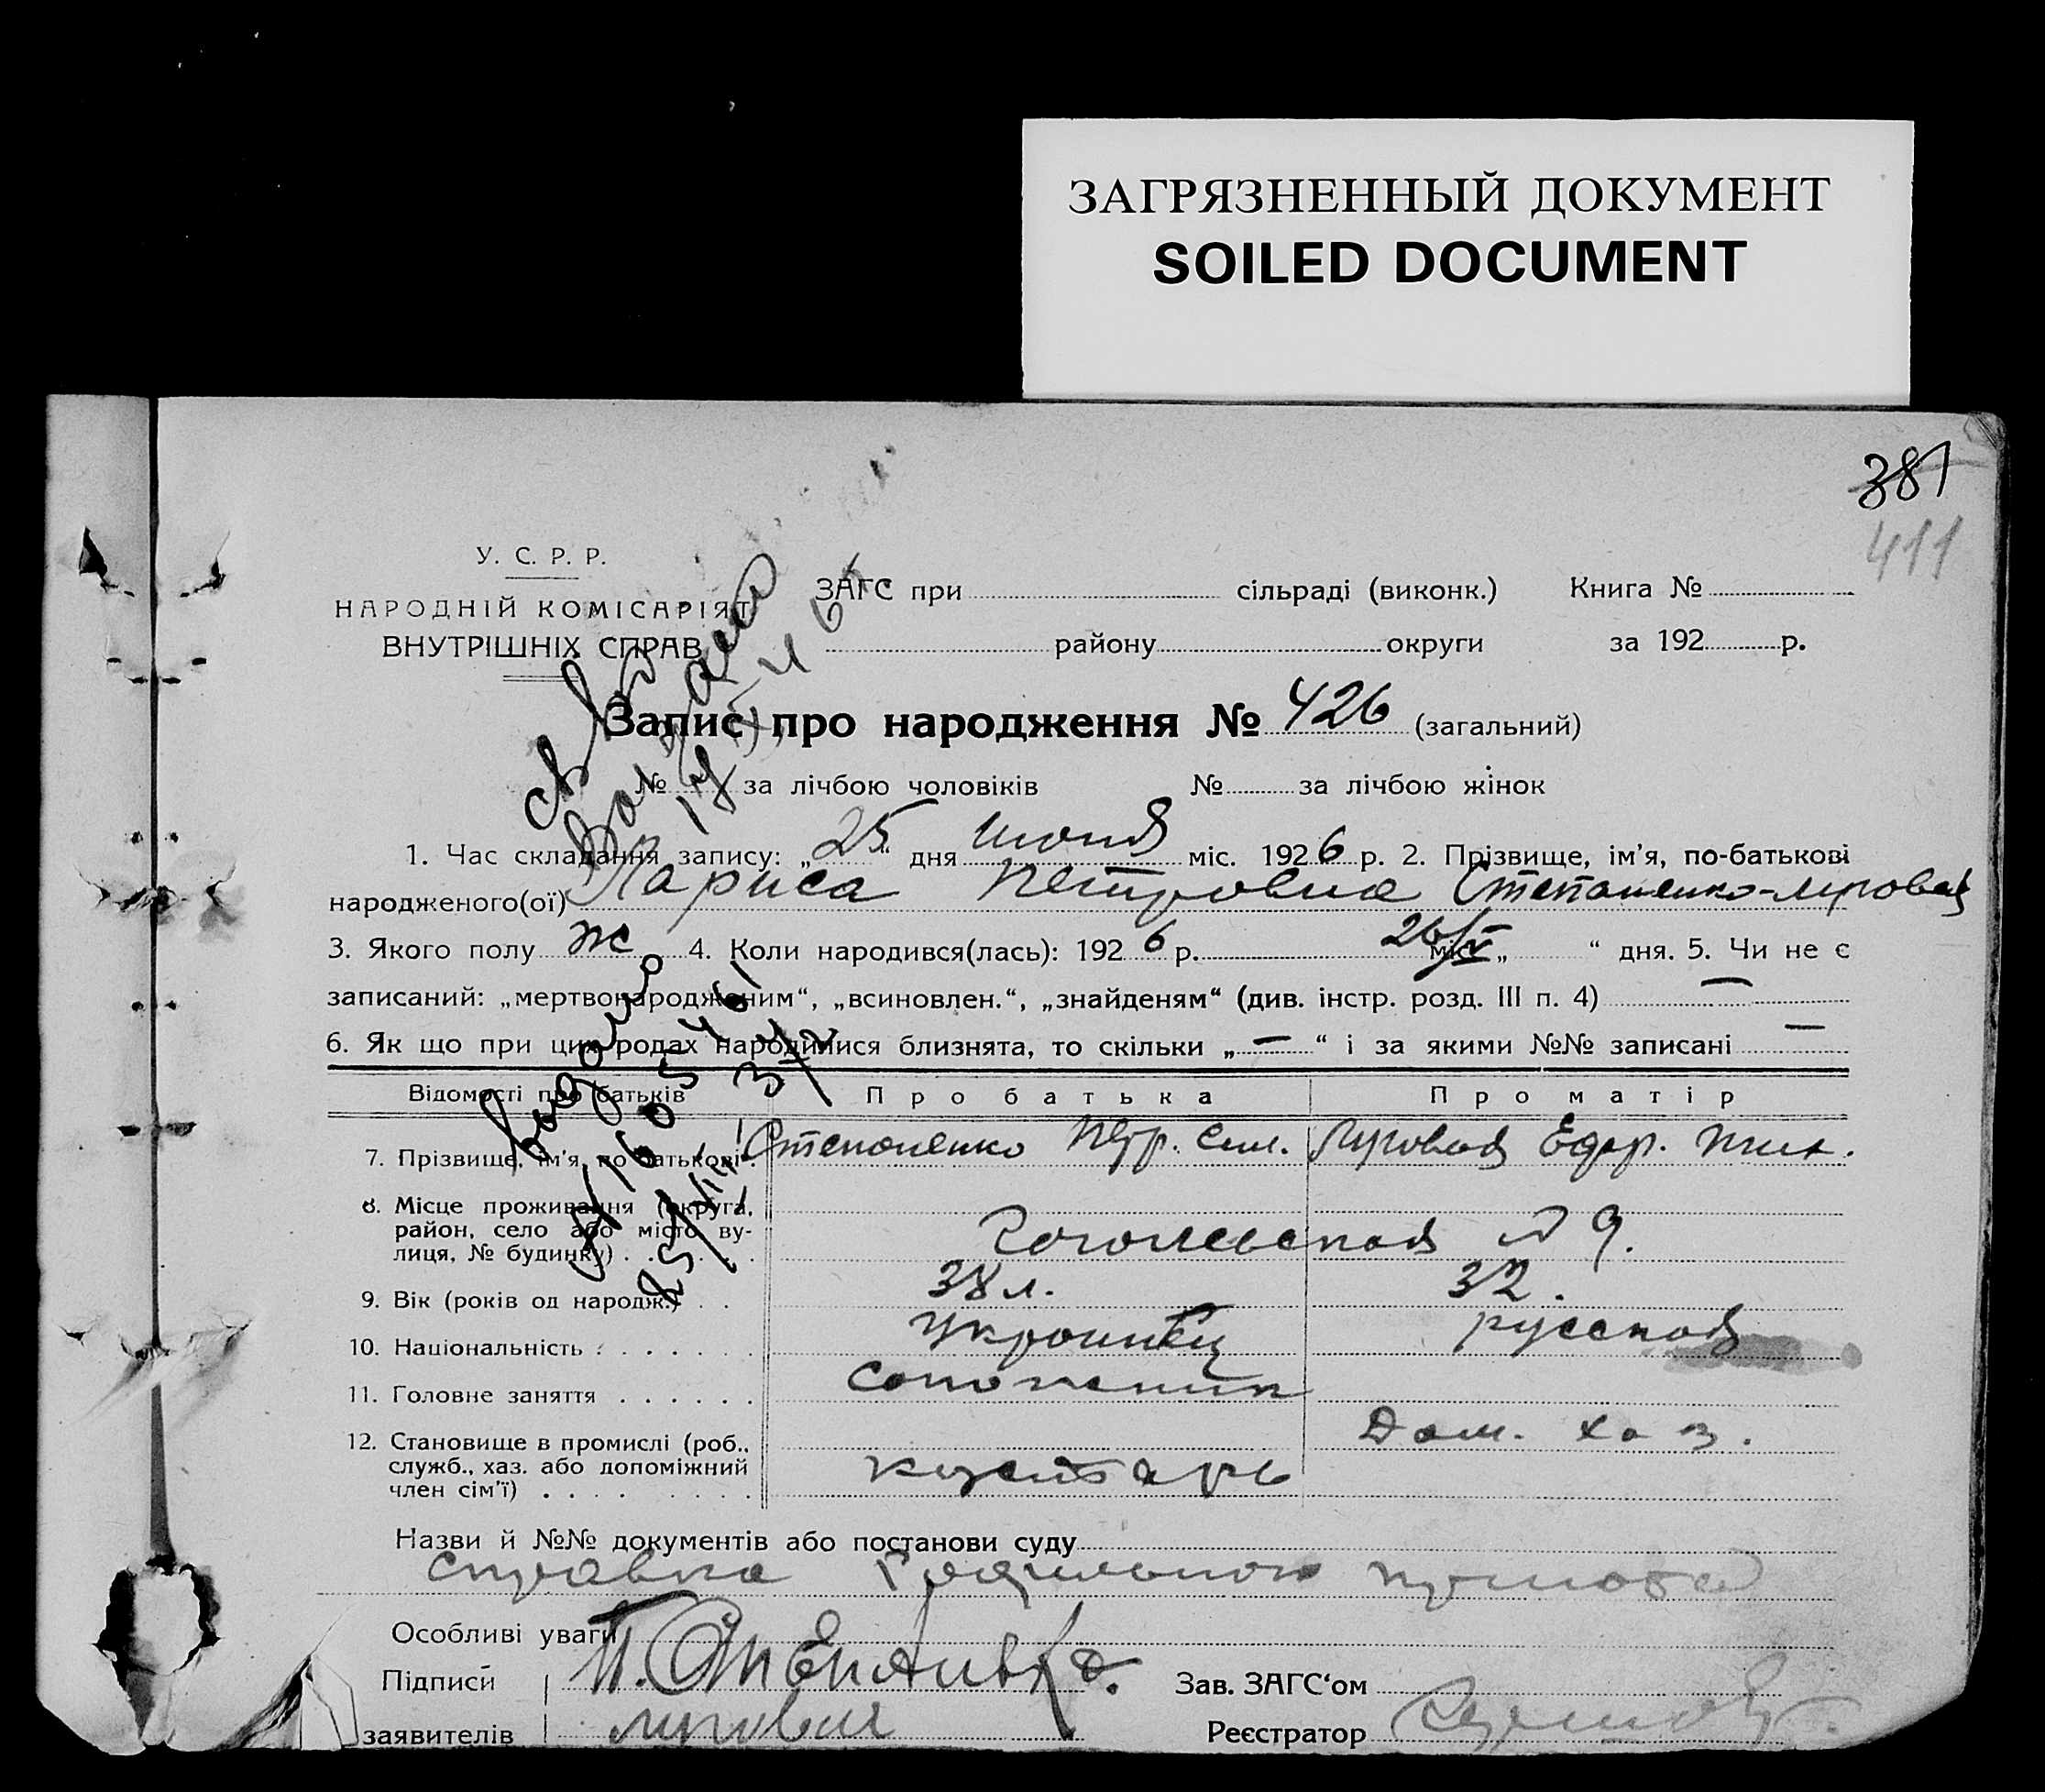 ЗАГРЯЗНЕННЫЙ ДОКУМЕНТ
SOILED DOCUMENT
381
411
У. С. Р. Р.
НАРОДНІЙ КОМІСАРІЯТ
ВНУТРІШНІХ СПРАВ
ЗАГС при сільраді (виконк.) Книга №
району округи за 192 р.
Запис про народження № 426 (загальний)
№ за лічбою чоловіків № за лічбою жінок
1. Час складання запису: „25“ дня Июня міс. 1926 р. 2. Прізвище, ім'я, по-батькові
народженого(ої) Лариса Петровна Степаненко-Луговая
3. Якого полу ж 4. Коли народився(лась): 1926 р. 26/V міс. „ “ дня. 5. Чи не є
записаний: „мертвонародженим“, „всиновлен.“, „знайденям“ (див. інстр. розд. III п. 4) —
6. Як що при цих родах народилися близнята, то скільки „—“ і за якими №№ записані —
Відомості про батьків Про батька Про матір
7. Прізвище, ім'я, по батькові Степаненко Петр. Сем. Луговая Едор.
8. Місце проживання (округа,
район, село або місто, ву-
лиця, № будинку) . . . Гоголевская № 9.
9. Вік (років од народж.) . . 38 л. 32.
10. Національність . . . . . . . Украинец русская
11. Головне заняття . . . . . . Сапожник
12. Становище в промислі (роб., Дом. хоз.
служб., хаз. або допоміжний кустарь
член сім'ї) . . . .
Назви й №№ документів або постанови суду
справка Родильного приюта
Особливі уваги
Підписи П. Степаненко. Зав. ЗАГС'ом
заявителів Луговая Реєстратор